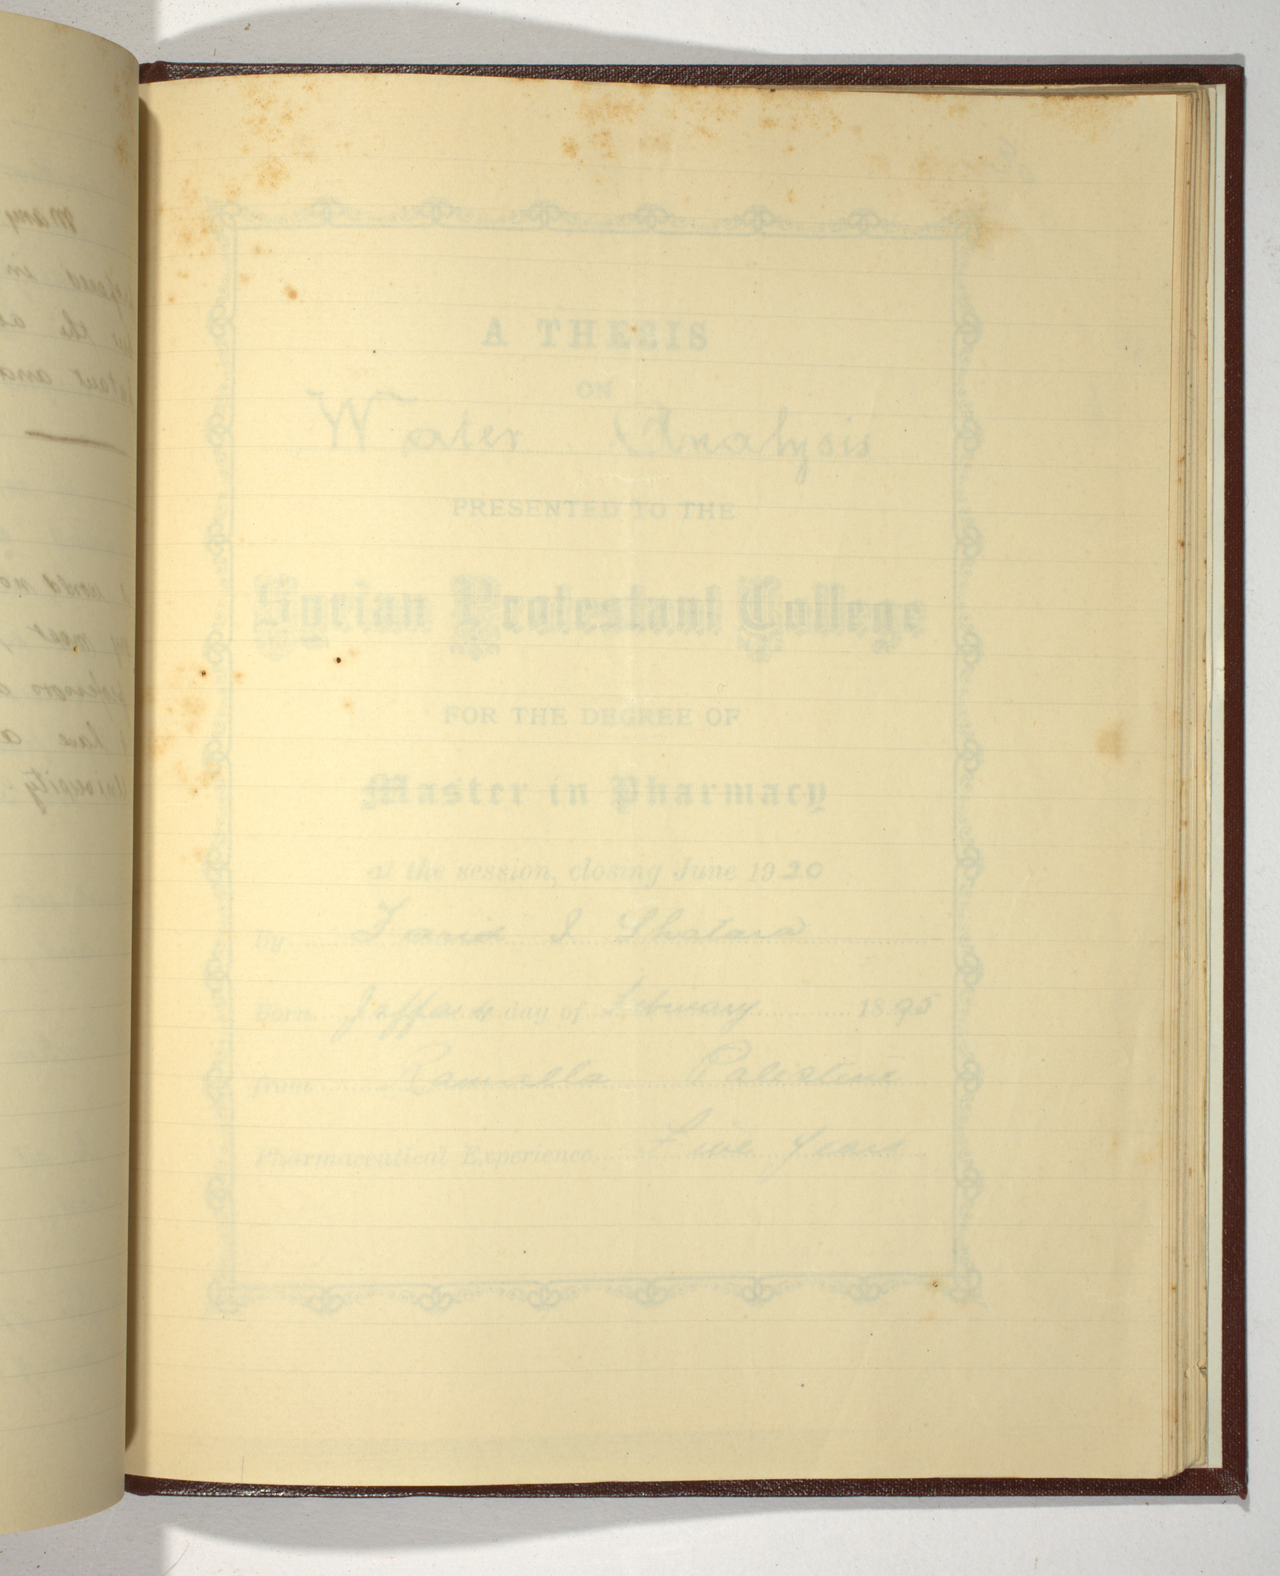 A THESIS
ON
Water Analysis
PRESENTED TO THE
Syrian Protestant College
FOR THE DEGREE OF
Master in Pharmacy
at the session, closing June 1920
By Farid I Shatara
Born Jaffa day of February 1895
from Ramalla Palestine
Pharmaceutical Experience Five years